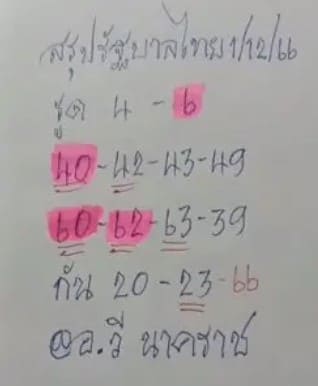 สรุปรัฐบาลไทย1/12/66
รูด 4 - 6
40-42-43-49
60-62-63-39
กัน 20-23-66
@อ.วี นาคราช